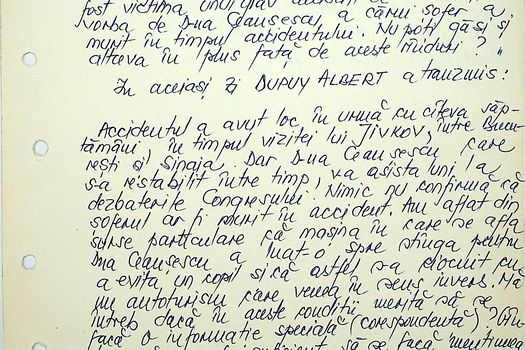 fost victima unui grav accident
vorba de D-na Ceausescu, a cărui sofer a
murit în timpul accidentului. Nu poti găsi si
altceva în plus fată de aceste
In aceiasi zi DUPUY ALBERT a tranzmis:
Accidentul a avut loc în urmă cu cîteva săp-
tămâni, în timpul vizitei lui JIVKOV, între Bucu-
resti si Sinaia. Dar D-na Ceausescu care
s-a restabilit între timp, va asista luni la
dezbaterile Congresului. Nimic nu confirmă că
soferul ar fi murit în accident. Am aflat din
surse particulare că masina în care se afla
D-na Ceausescu a luat-o spre stînga pentru
a evita un copil si că astfel s-a ciocnit cu
un autoturism care venea în sens invers. Mă
întreb dacă în aceste conditii merită să se
facă o informatie specială (corespondentă)?
să se facă mentiunea